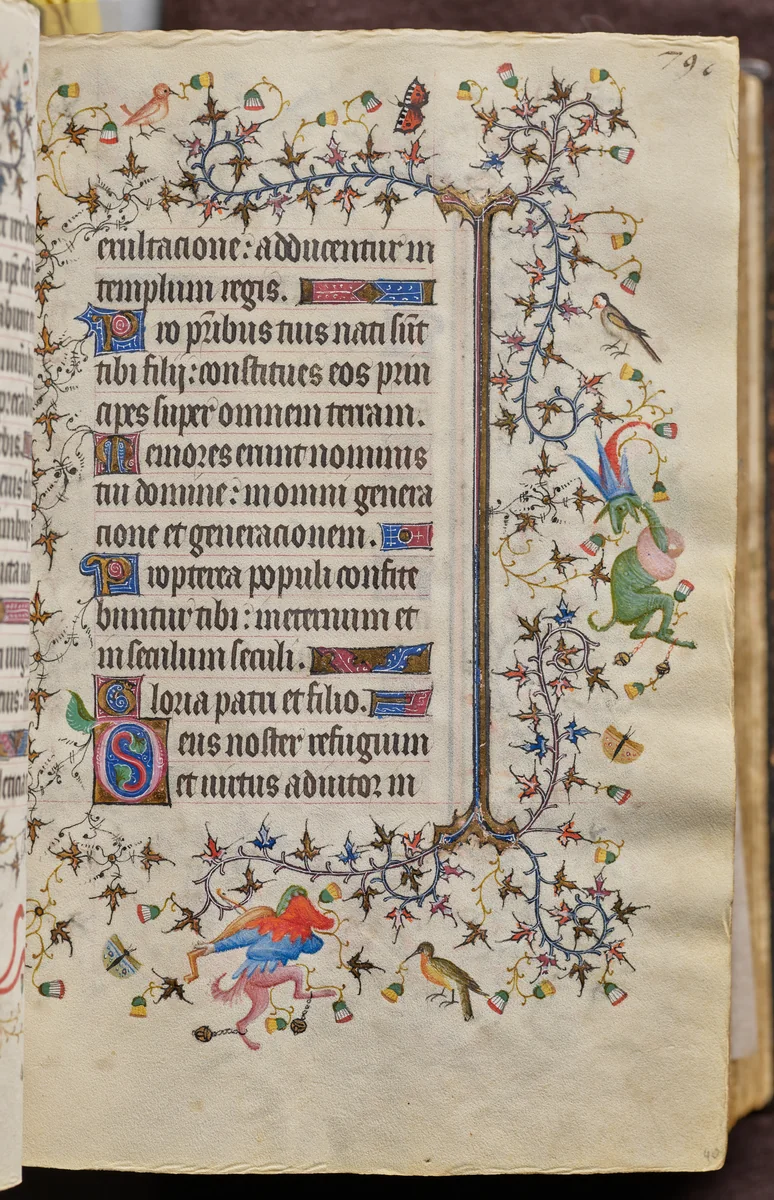 796
exultacione: adducentur in
templum regis.
Pro pr̃ibus tuis nati sũt
tibi filij: constitues eos prin
cipes super omnem terram.
Memores erunt nominis
tui domine: in omni genera
cione et generacionem.
Propterea populi confite
buntur tibi: in eternum et
in seculum seculi.
Gloria patri et filio.
Deus noster refugium
et uirtus adiutor in
40